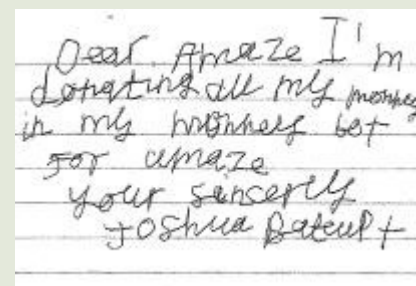 Dear Amaze I'm
donating all my monney
in my monney bot
for amaze
your sincerly
Joshua Bateup +